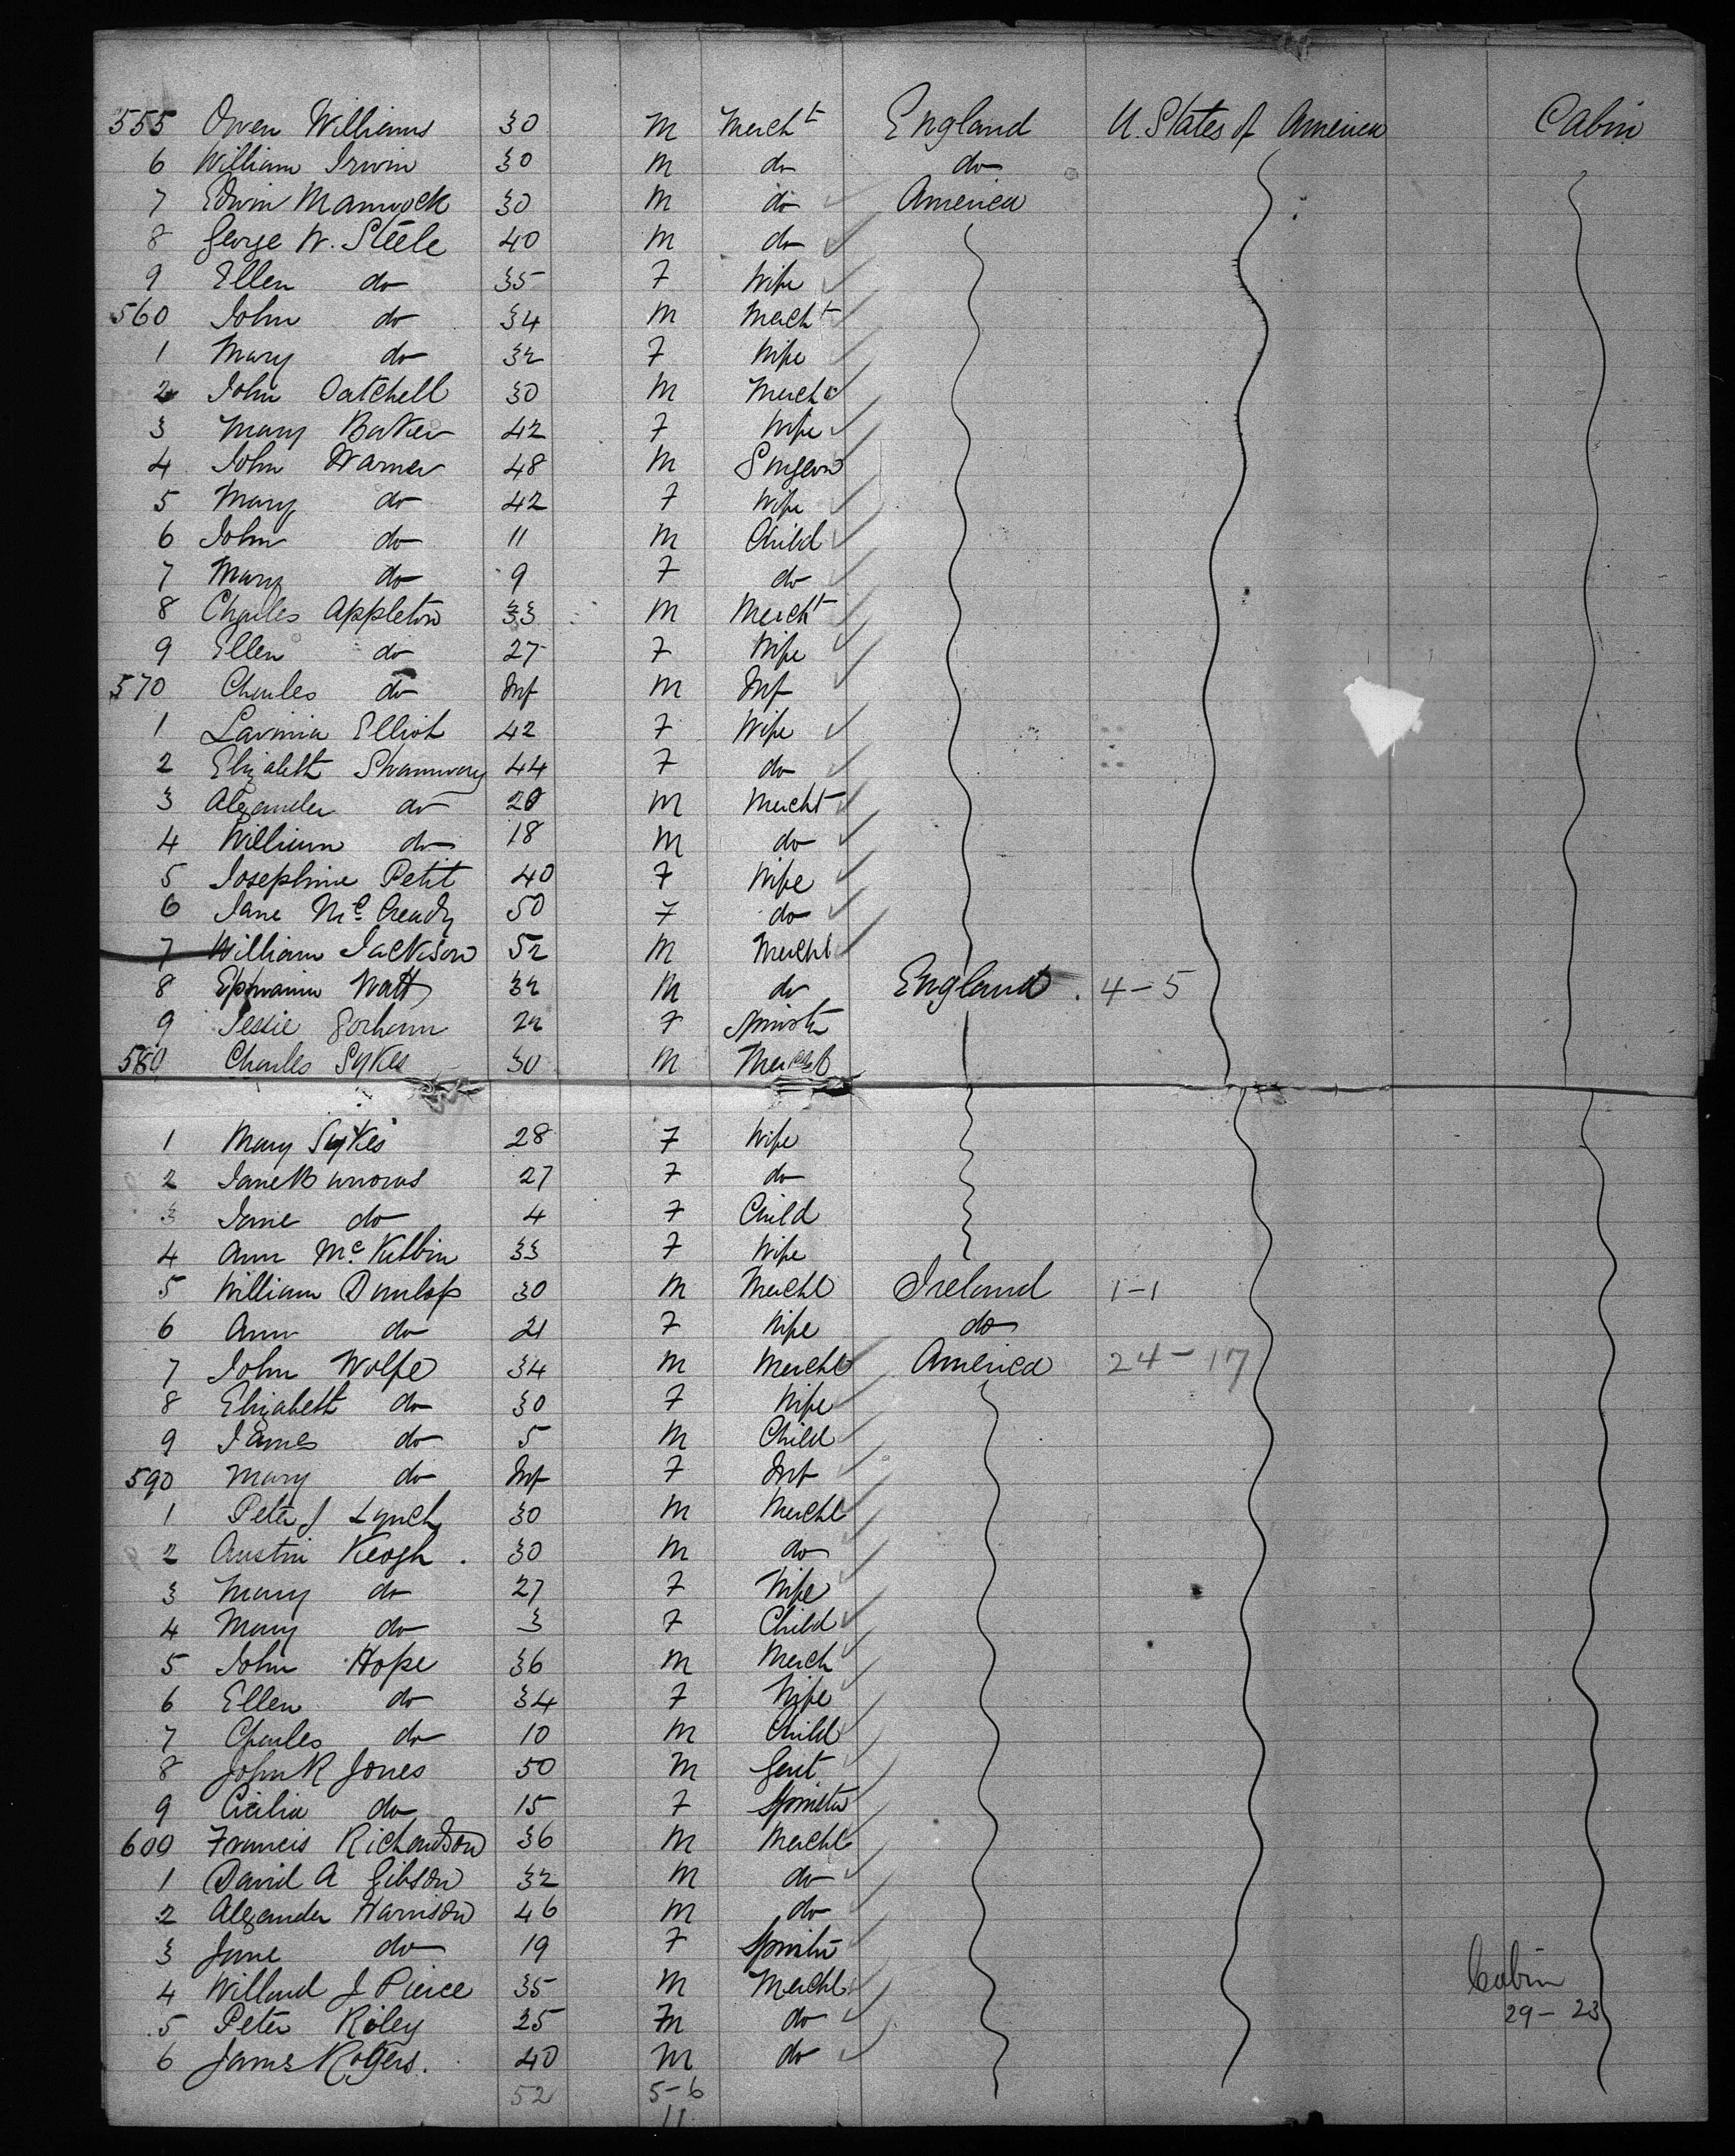 555 Owen Williams 30 M Mercht England U. States of America Cabin
6 William Irwin 30 M do do
7 Edwin Mannock 30 M do America
8 George W. Steele 40 M do
9 Ellen do 35 F Wife
560 John do 34 M Mercht
1 Mary do 32 F Wife
2 John Oatchell 30 M Mercht
3 Mary Baker 42 F Wife
4 John Warner 48 M Surgeon
5 Mary do 42 F Wife
6 John do 11 M Child
7 Mary do 9 F do
8 Charles Appleton 33 M Mercht
9 Ellen do 27 F Wife
570 Charles do Inf M Inf
1 Lavinia Elliot 42 F Wife
2 Elizabeth Shamway 44 F do
3 Alexander do 20 M Mercht
4 William do 18 M do
5 Josephine Petit 40 F Wife
6 Jane McCready 50 F do
7 William Jackson 52 M Mercht
8 Ephraim Watt 32 M do England . 4-5
9 Jessie Gorham 22 F Spinster
580 Charles Sykes 30 M Mercht
1 Mary Sykes 28 F Wife
2 Jane Burrows 27 F do
3 Jane do 4 F Child
4 Ann McKibbin 33 F Wife
5 William Dunlop 30 M Mercht Ireland 1-1
6 Ann do 21 F Wife do
7 John Wolfe 34 M Mercht America 24-17
8 Elizabeth do 30 F Wife
9 James do 5 M Child
590 Mary do Inf F Inf
1 Peter J Lynch 30 M Mercht
2 Austin Keogh . 30 M do
3 Mary do 27 F Wife
4 Mary do 3 F Child
5 John Hope 36 M Merch
6 Ellen do 34 F Wife
7 Charles do 10 M Child
8 John R Jones 50 M Gent
9 Cicilia do 15 F Spinster
600 Francis Richardson 36 M Mercht
1 David A Gibson 32 M do
2 Alexander Harrison 46 M do
3 Jane do 19 F Spinster
4 Willard J Pierce 35 M Mercht Cabin
5 Peter Riley 25 M do 29-23
6 James Rogers. 40 M do
52 5-6
11